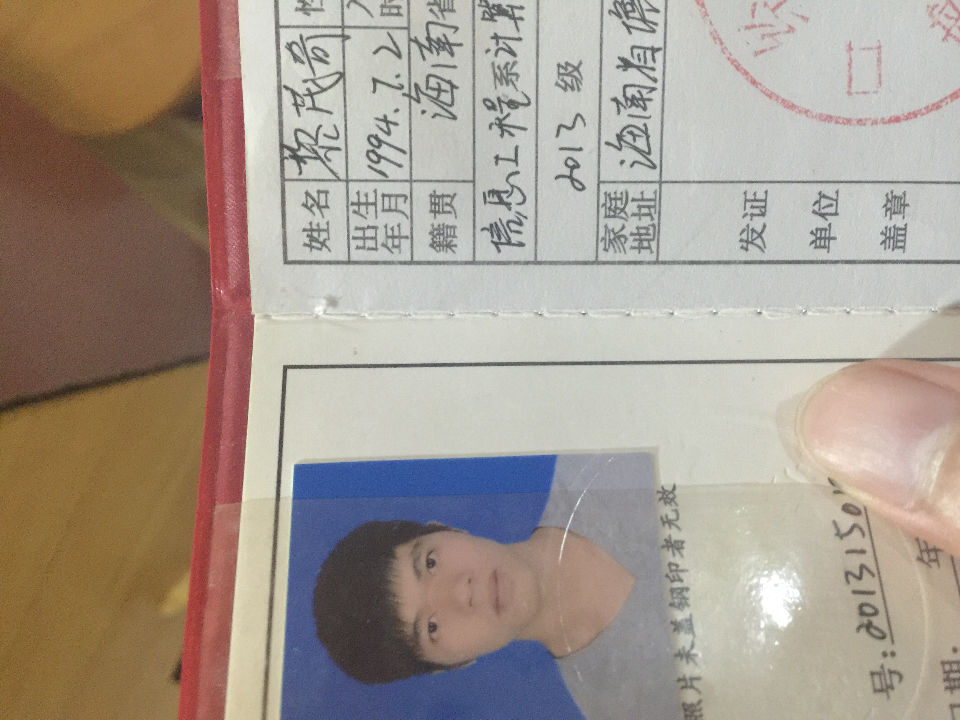 姓名 黎茂奇 性
出生年月 1994.7.2
籍贯 海南省
信息工程系计算
2013 级
家庭地址 海南省
发证
单位
盖章
照片未盖钢印者无效
号:2013150
年